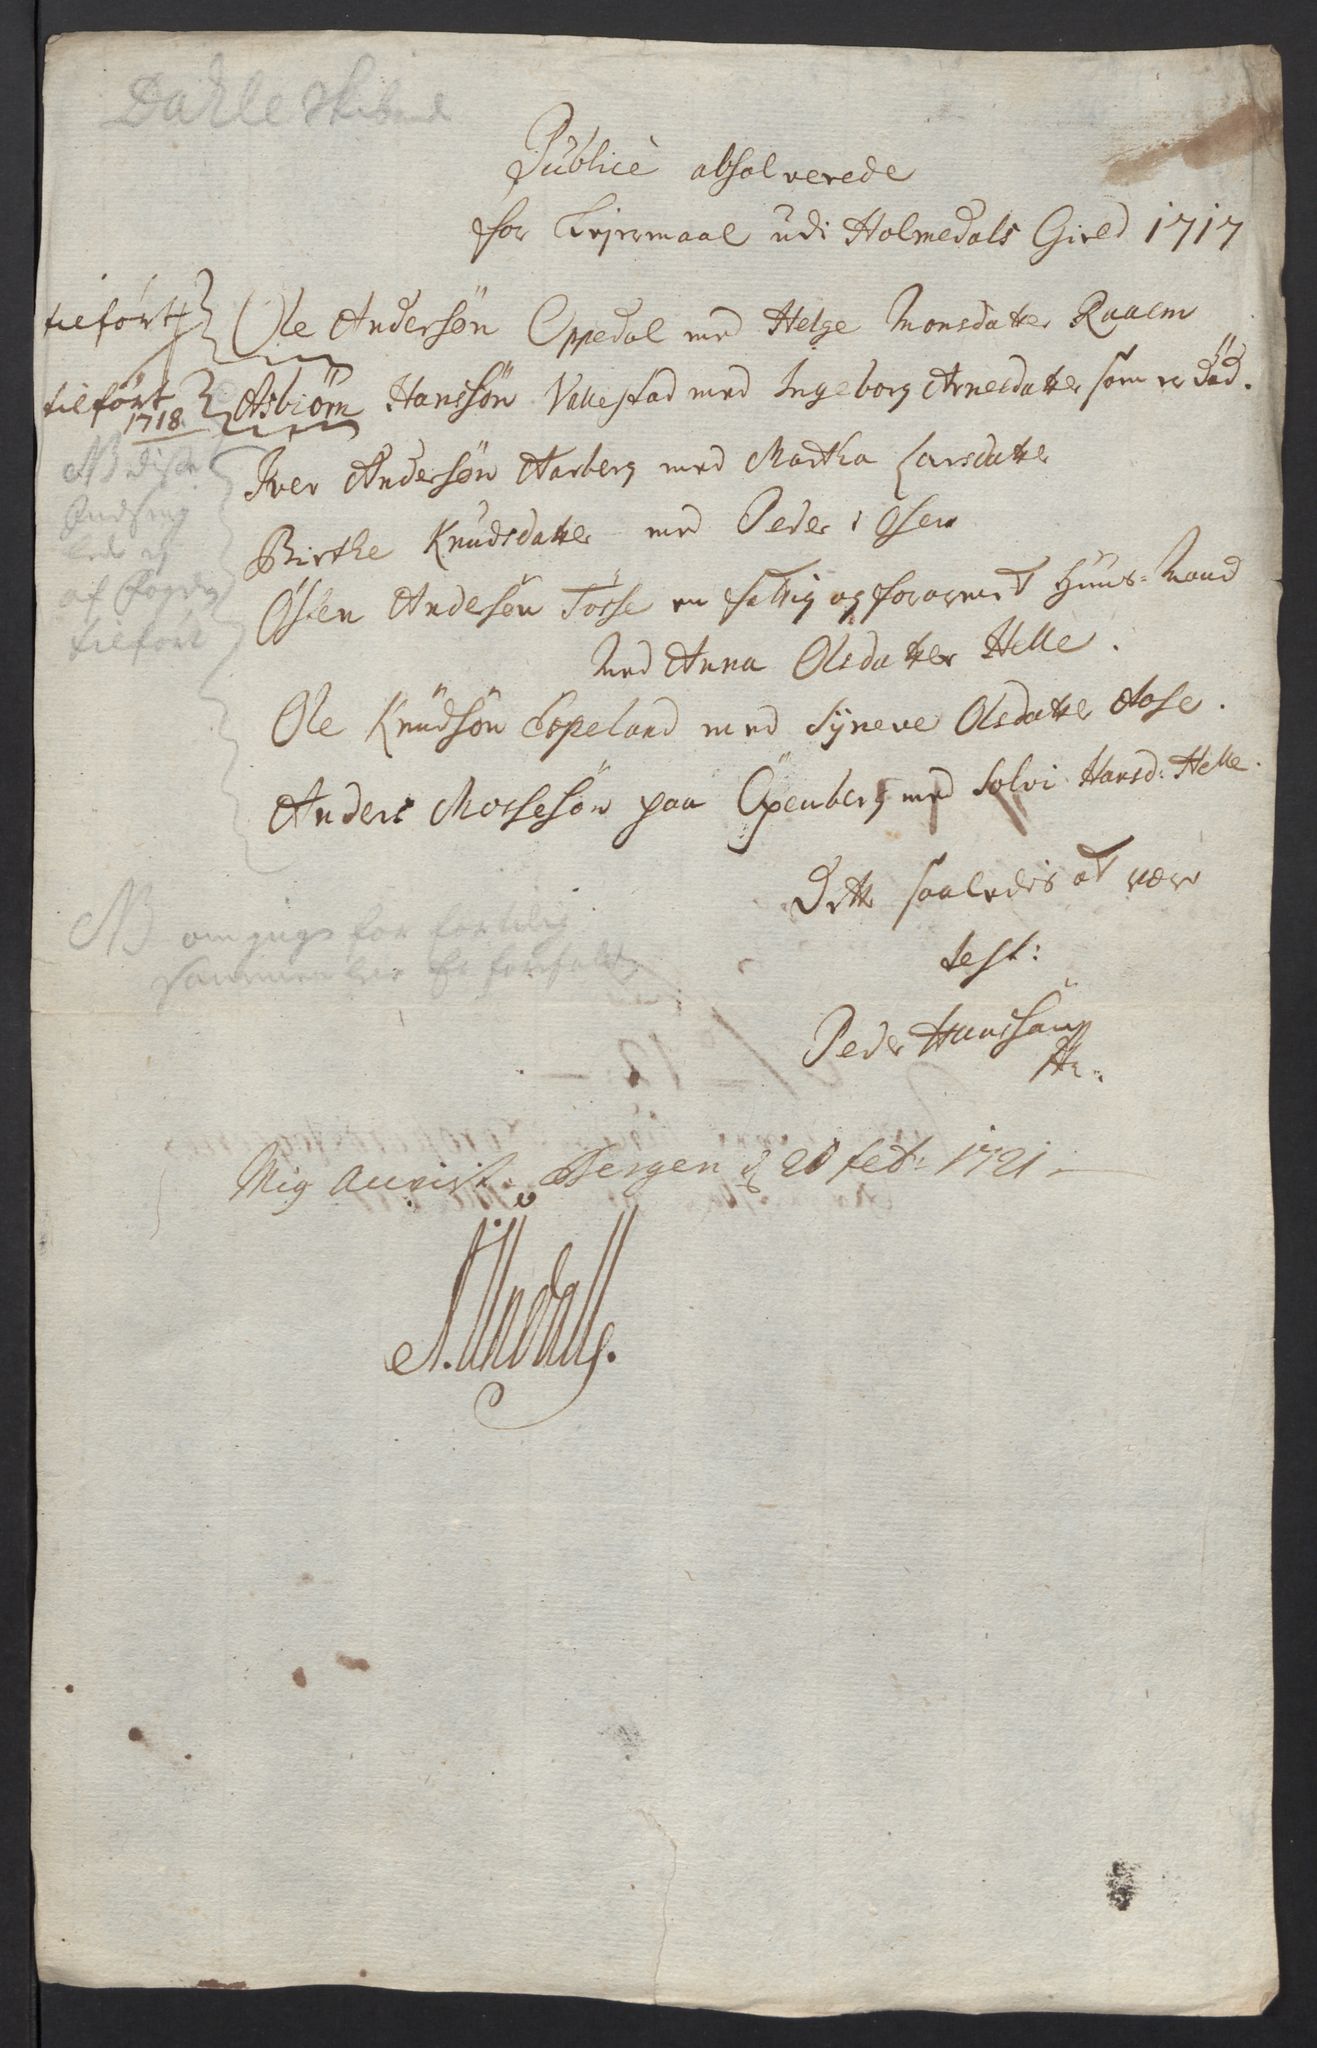 Dahle Skibred
Publicè absolverede
for Lejermaal udi Holmedals Gield 1717
tilført Ole Andersön Oppedal med Helge Monsdatter Raaem
tilført 1718 Asbiörn Hanssön Vallestad med Ingeborg Arnesdatter som er död.
Iver Andersön Aarberg med Martha Larsdatter
Birthe Knudsdatter med Peder i Osen
Østen Andersön Tösse en fattig og forarmet Huus-Mand
med Anna Olsdatter Helle.
Ole Knudsön Espeland med Syneve Olsdatter Aase.
Anders Mossesön paa Öpenberg med Solvi Hansd: Helle.
NB disse
af Fogden
tilfört
Dette saaledes at være
test:
Peder Hanssön
NB for tidlig
Mig anvist Bergen d 21 feb: 1721